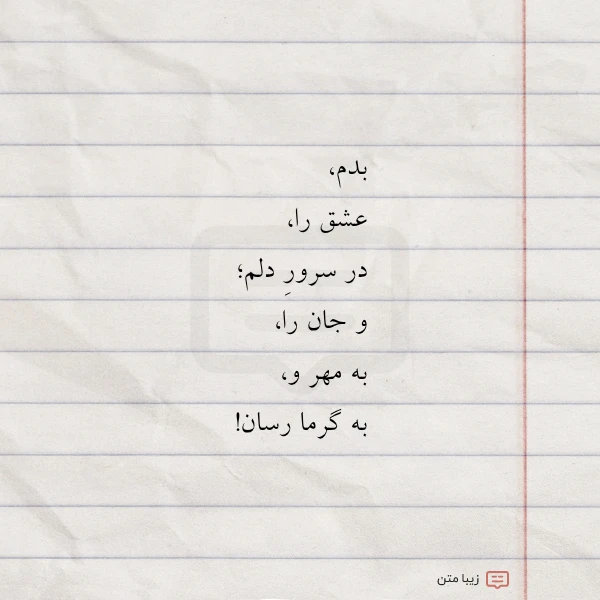 بدم،
عشق را،
در سرورِ دلم؛
و جان را،
به مهر و،
به گرما رسان!
زیبا متن